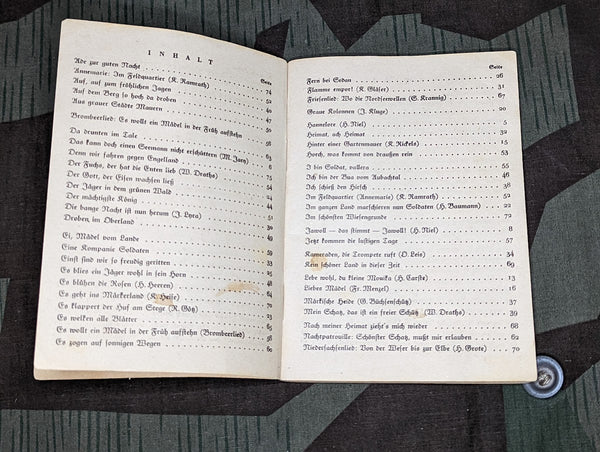 INHALT
Seite
Ade zur guten Nacht
Annemarie: Im Feldquartier (K. Ramrath) 74
Auf, auf zum fröhlichen Jagen 52
Auf dem Berg so hoch da droben 40
Aus grauer Städte Mauern 47
Bromberlied: Es wollt ein Mädel in der Früh aufstehn 56
Da drunten im Tale 63
Das kann doch einen Seemann nicht erschüttern (M. Jary) 6
Denn wir fahren gegen Engelland 75
Der Fuchs, der hat die Enten lieb (W. Draths)
Der Gott, der Eisen wachsen ließ 54
Der Jäger in dem grünen Wald
Der mächtigste König
Die bange Nacht ist nun herum (J. Lyra) 51
Droben im Oberland 49
Ei, Mädel vom Lande
Eine Kompanie Soldaten 59
Einst sind wir so freudig geritten 33
Es blies ein Jäger wohl in sein Horn 48
Es blühen die Rosen (H. Heeren)
Es geht ins Märkerland (K. Heise)
Es klappert der Huf am Stege (R. Götz)
Es welken alle Blätter
Es wollt ein Mädel in der Früh aufstehn (Brombeerlied) 56
Es zogen auf sonnigen Wegen 60
Seite
Fern bei Sedan 26
Flamme empor! (K. Gläser) 31
Friesenlied: Wo die Nordseewellen (S. Krannig) 67
Graue Kolonnen (J. Kluge) 20
Hannelore (H. Niel) 5
Heimat, ach Heimat 32
Hinter einer Gartenmauer (K. Nickels) 15
Horch, was kommt von draußen rein 53
I bin Soldat, vallera 55
Ich bin der Bua vom Aubachtal 46
Ich schieß den Hirsch 38
Im Feldquartier (Annemarie) (K. Ramrath)
Im ganzen Land marschieren nun Soldaten (H. Baumann) 22
Im schönsten Wiesengrunde 72
Jawoll — das stimmt — Jawoll! (H. Niel) 8
Jetzt kommen die lustigen Tage 57
Kameraden, die Trompete ruft (O. Leis) 34
Kein schöner Land in dieser Zeit 69
Lebe wohl, du kleine Monika (H. Carste) 13
Liebes Mädel (Fr. Menzel) 16
Märkische Heide (G. Büchsenschütz) 37
Mein Schatz, das ist ein freier Schütz (W. Draths) 39
Nach meiner Heimat zieht's mich wieder 68
Nachtpatrouille: Schönster Schatz, mußt mir erlauben 62
Niedersachsenlied: Von der Weser bis zur Elbe (H. Grote) 70